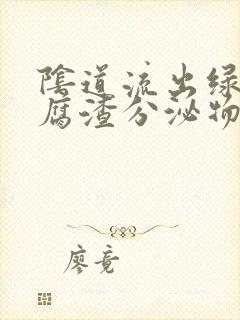 陰道流出绿
腐渣分泌物
廖竟